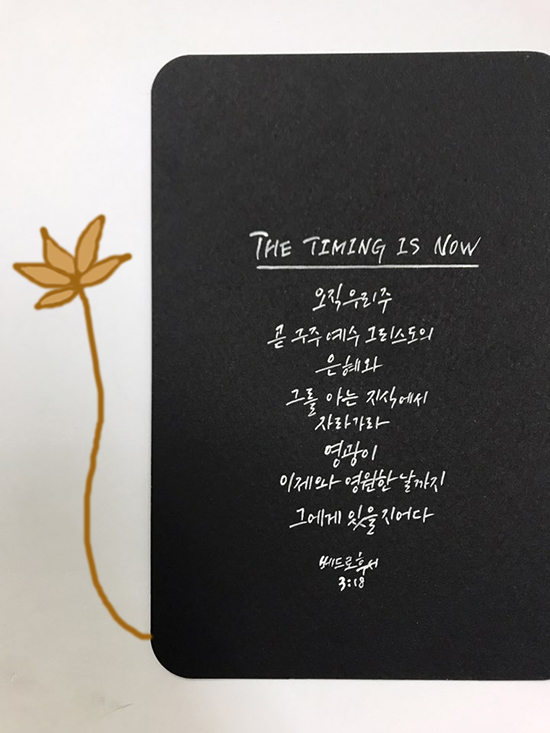 THE TIMING IS NOW
오직 우리 주
곧 구주 예수 그리스도의
은혜와
그를 아는 지식에서
자라가라
영광이
이제와 영원한 날까지
그에게 있을지어다
베드로후서
3:18